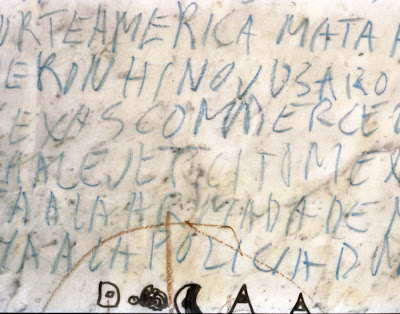 URTEAMERICA MATA A
ERON HINOJOSA RO
EXAS COMMERCE
ALEJERCITO MEX
A A LA ARMADA DE M
A A LA POLICIA D
D A A